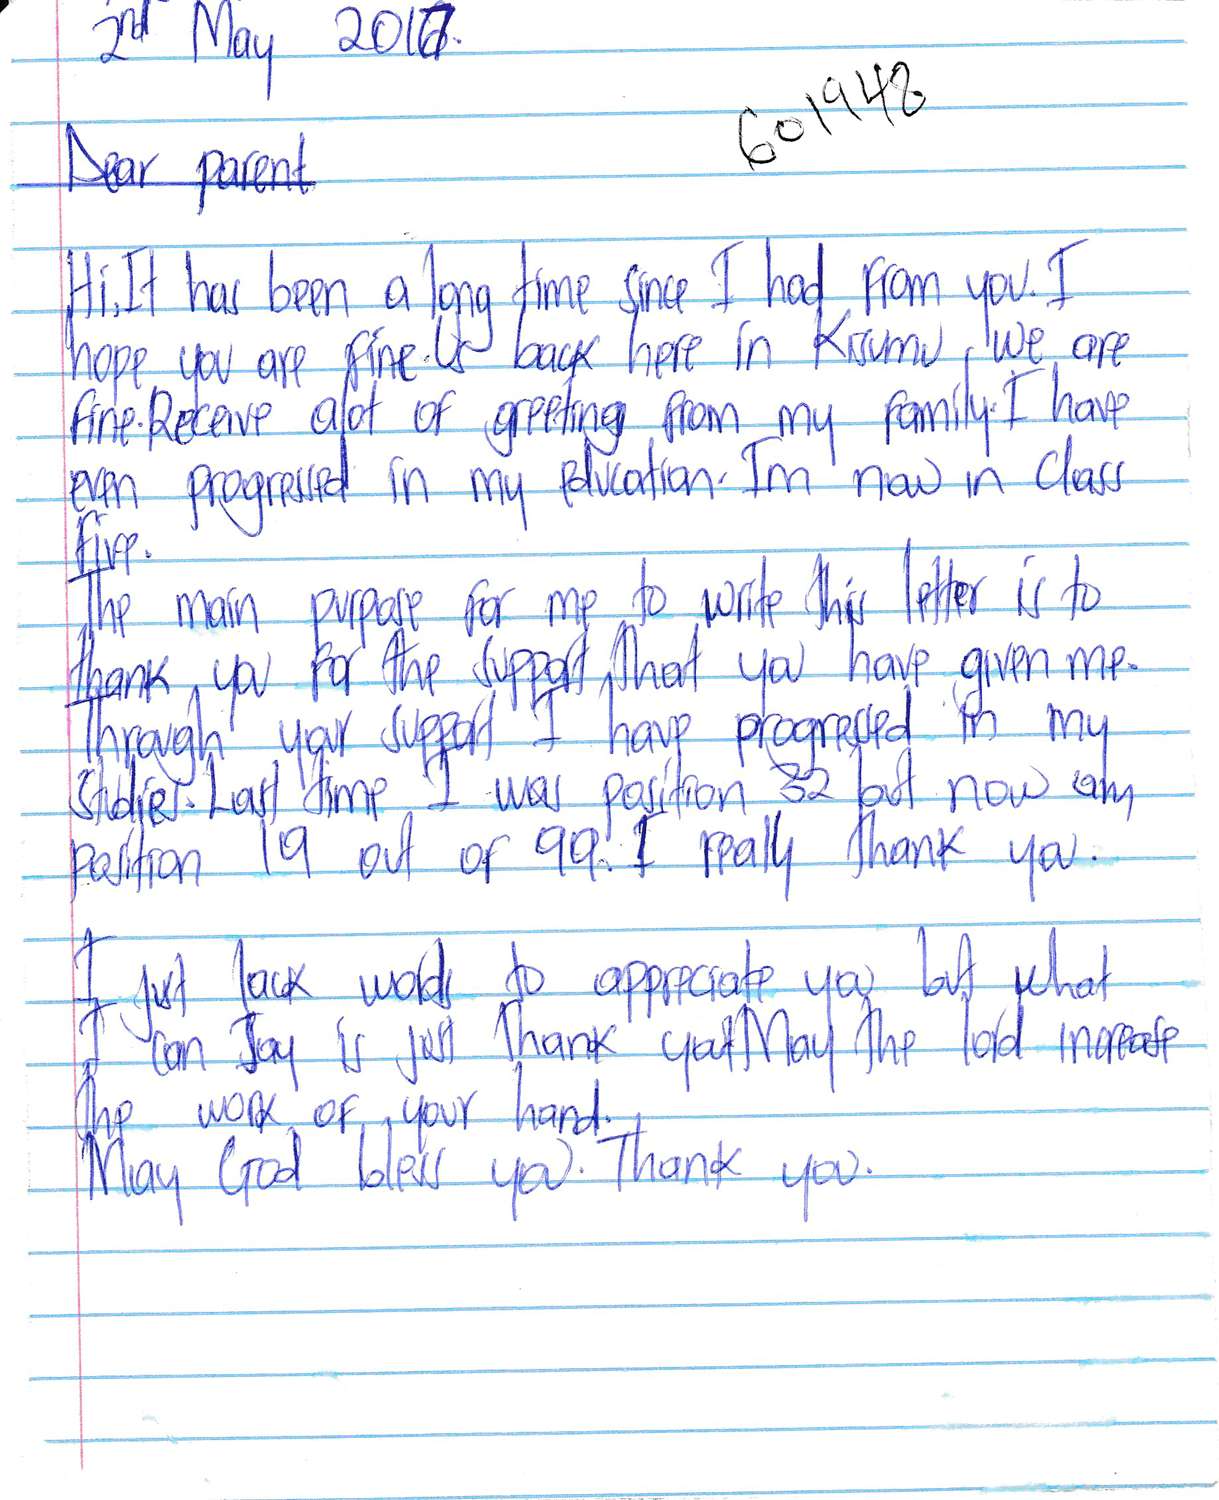 2nd May 2017.
601948
Dear parent
Hi. It has been a long time since I had from you. I
hope you are fine. Us back here in Kisumu, we are
fine. Receive alot of greeting from my family. I have
even progressed in my education. Im now in Class
five.
The main purpose for me to write this letter is to
thank you for the support that you have given me.
Through your support I have progressed in my
studies. Last time I was position 32 but now am
position 19 out of 99. I really thank you.
I just lack words to appreciate you but what
I can say is just thank you May the lord increase
the work of your hand.
May God bless you. Thank you.